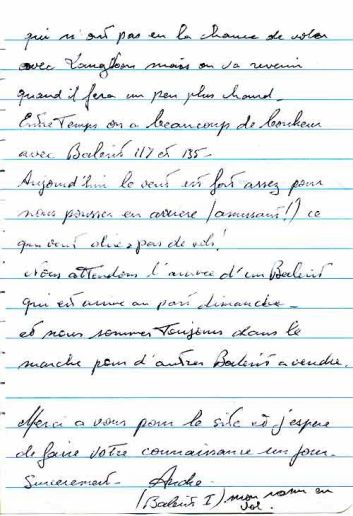 qui n'ont pas eu la chance de voler
avec Langtoon mais on va revenir
quand il fera un peu plus chaud.
Entre Temps on a beaucoup de bonheur
avec Baleris 117 et 135-
Aujourd'hui le vent est fort assez pour
nous pousser en arriere (amusant!) ce
que veut dire pas de vols!
Nous attendons l'arrivee d'un Baleris
qui est arrive au port dimanche -
et nous sommes Toujours dans le
marche pour d'autres Baleris a vendre.
Merci a vous pour le site et j'espere
de faire votre connaissance un jour.
Sincerement - Andre
(Baleris I) mon nom en
vol.